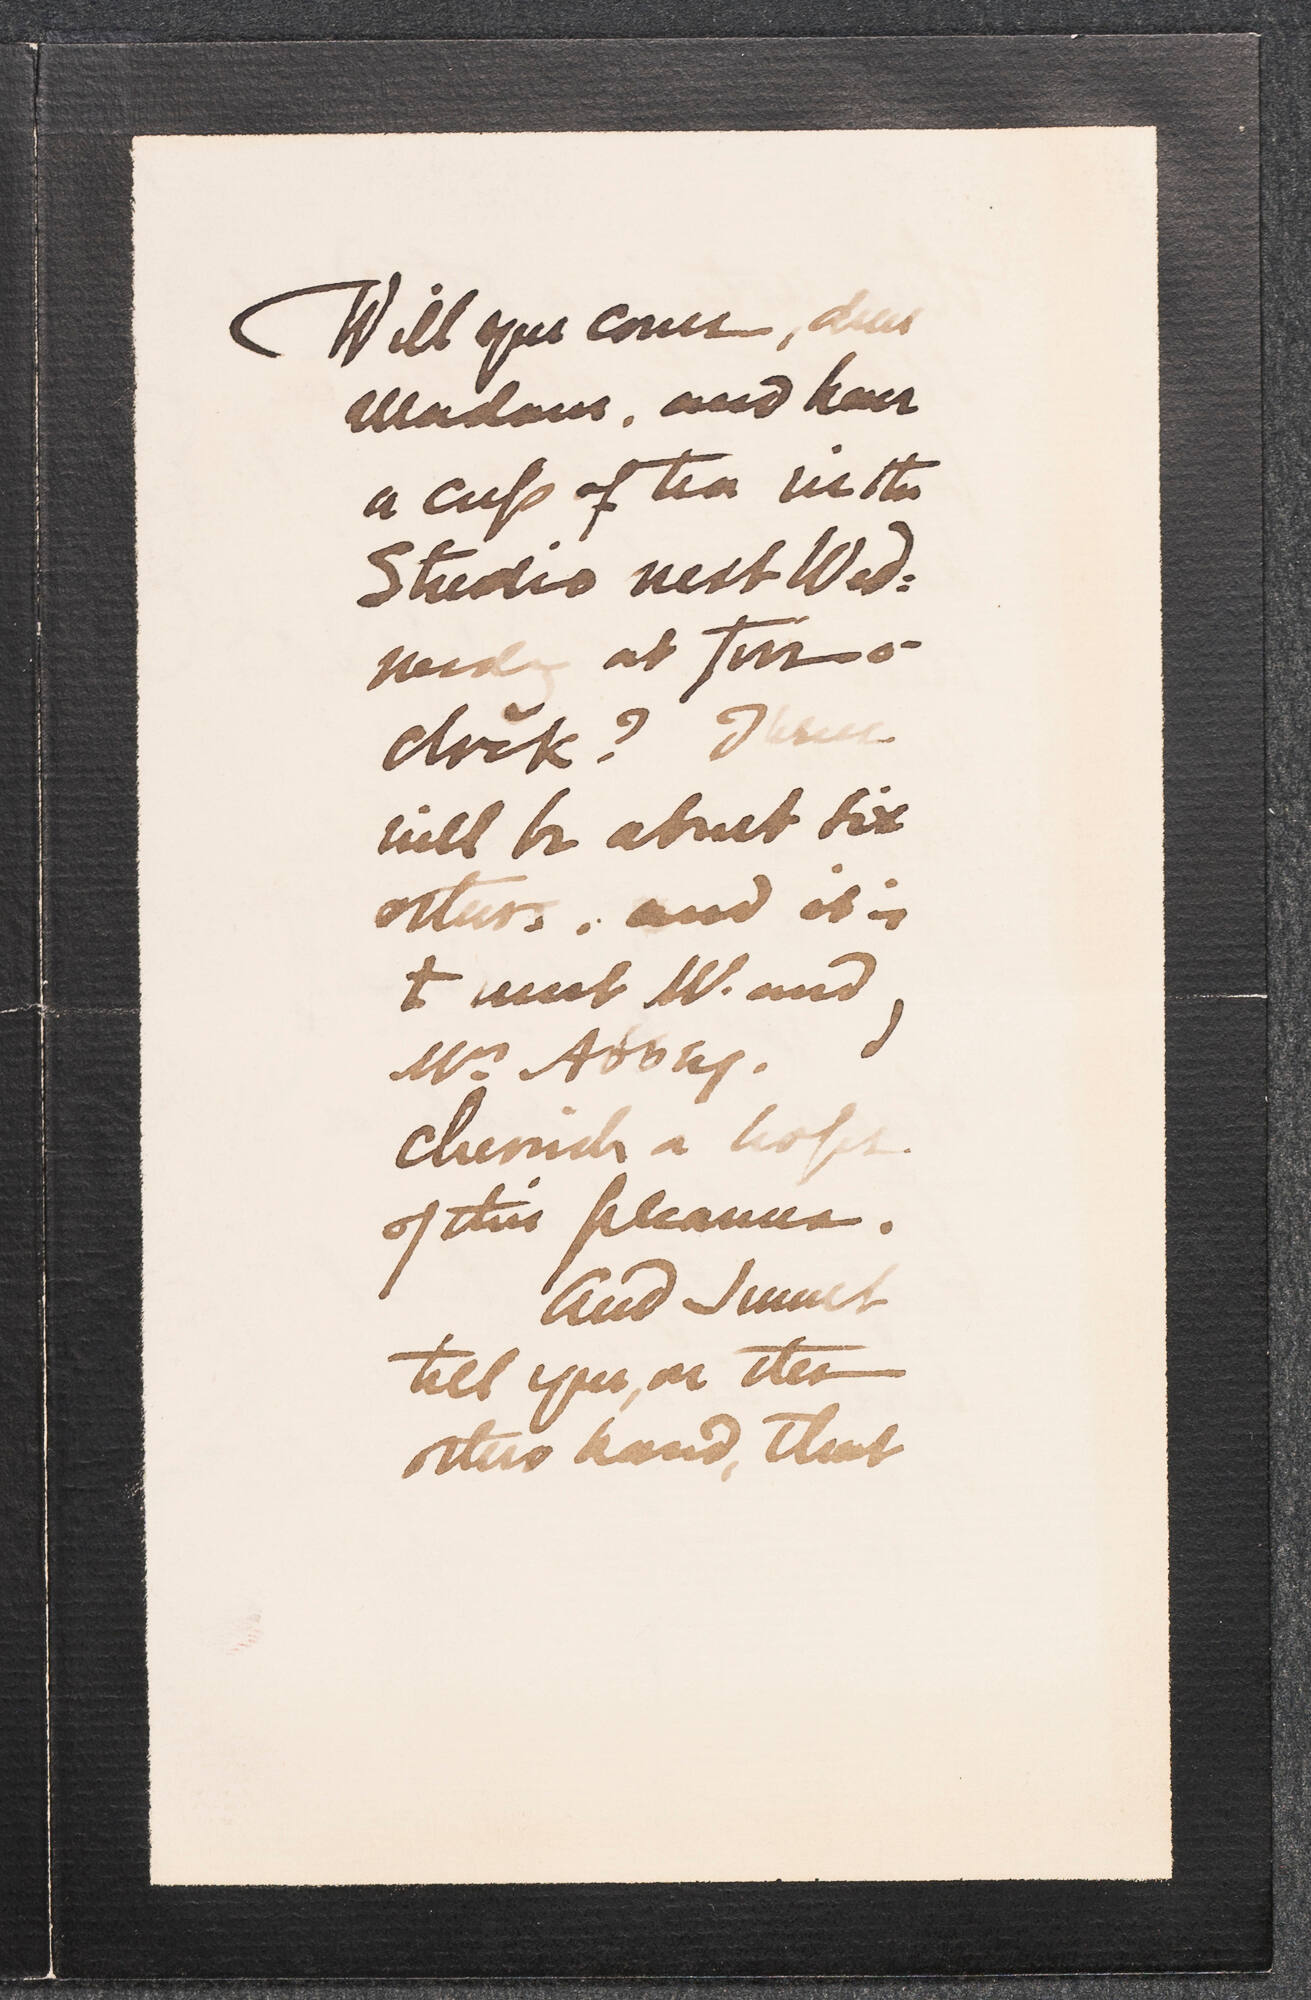 Will you come, dear
Madam, and have
a cup of tea in the
Studio next Wed:
nesday at four o
clock? There
will be about six
others, and it is
to meet Mr. and
Mrs Abbey. I
cherish a hope
of this pleasure.
And I must
tell you, on the
other hand, that